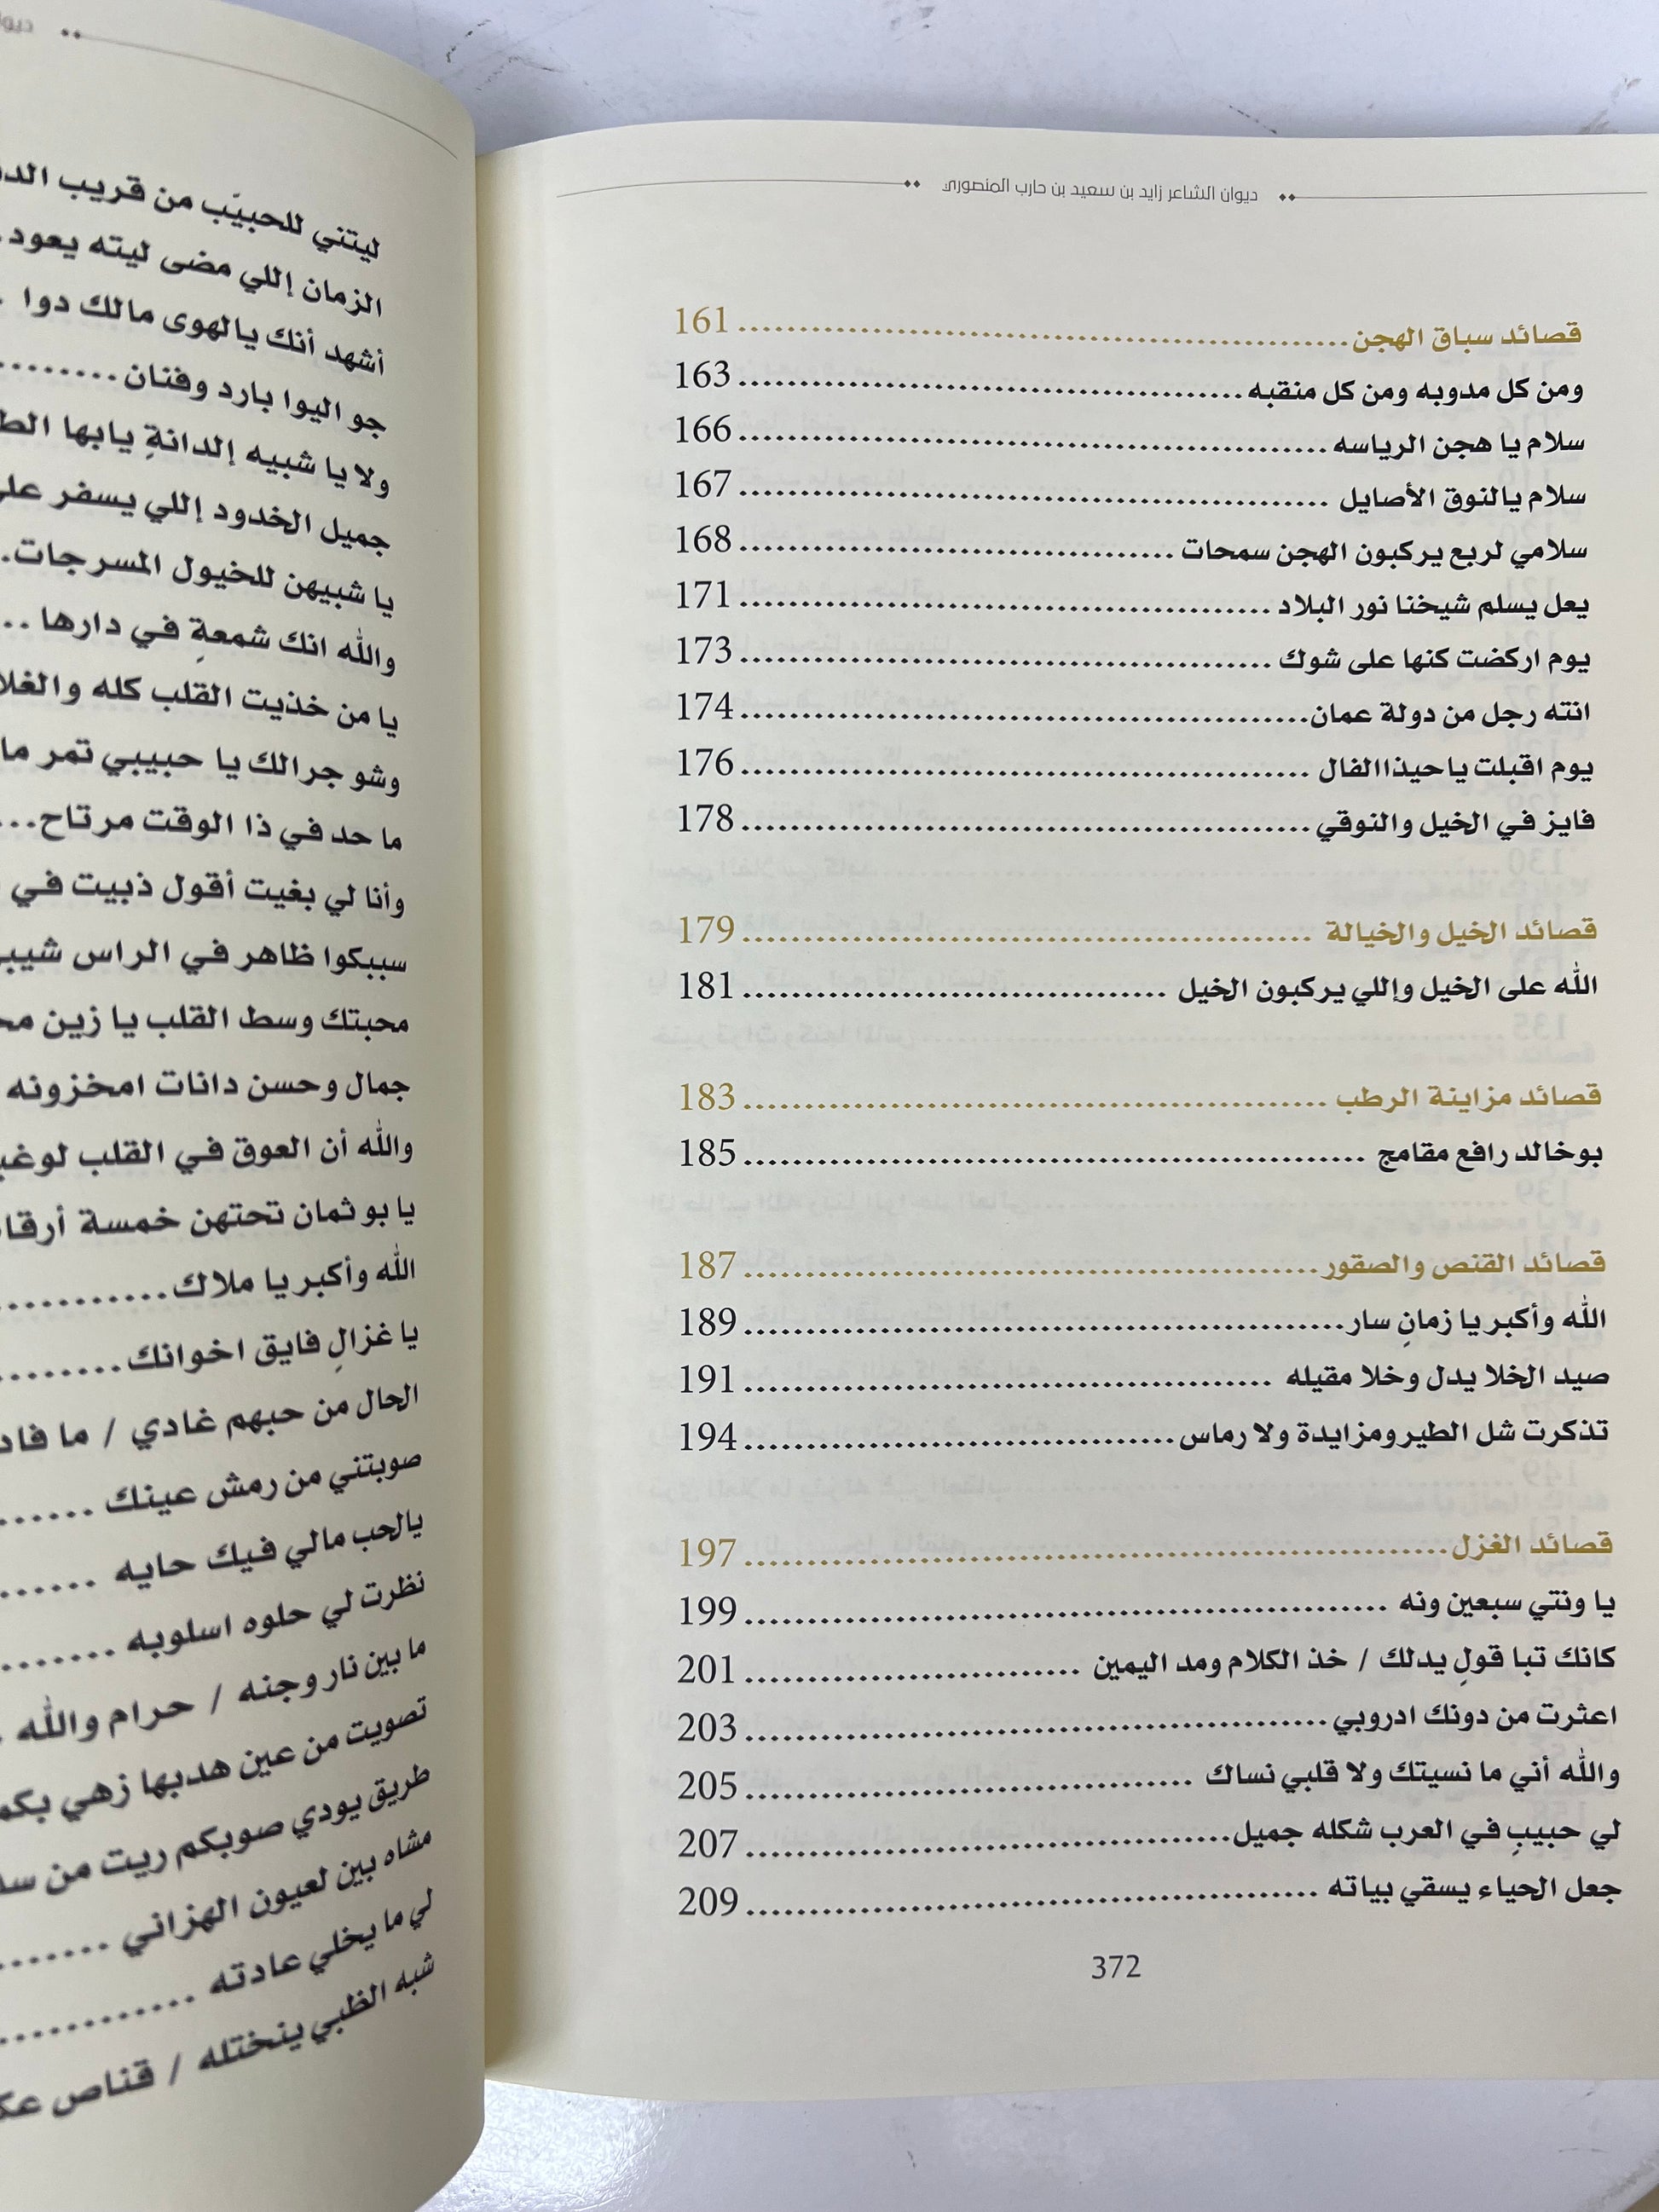 ديوان الشاعر زايد بن سعيد بن حارب المنصوري
قصائد سباق الهجن 161
ومن كل مدوبه ومن كل منقبه 163
سلام يا هجن الرياسه 166
سلام يالنوق الأصايل 167
سلامي لربع يركبون الهجن سمحات 168
يعل يسلم شيخنا نور البلاد 171
يوم اركضت كنها على شوك 173
انته رجل من دولة عمان 174
يوم اقبلت ياحيذاالفال 176
فايز في الخيل والنوقي 178
قصائد الخيل والخيالة 179
الله على الخيل وإللي يركبون الخيل 181
قصائد مزاينة الرطب 183
بوخالد رافع مقامج 185
قصائد القنص والصقور 187
الله وأكبر يا زمانٍ سار 189
صيد الخلا يدل وخلا مقيله 191
تذكرت شل الطير ومزايدة ولا رماس 194
قصائد الغزل 197
يا ونتي سبعين ونه 199
كانك تبا قولٍ يدلك / خذ الكلام ومد اليمين 201
اعثرت من دونك ادروبي 203
والله أني ما نسيتك ولا قلبي نساك 205
لي حبيبٍ في العرب شكله جميل 207
جعل الحياء يسقي بياته 209
372
ليتني للحبيّب من قريب
الزمان إللي مضى ليته يعود
أشهد أنك يالهوى مالك دوا
جو اليوا بارد وفنان
ولا يا شبيه إلدانةٍ يابها
جميل الخدود إللي يسفر
يا شبيهن للخيول المسرجات
والله انك شمعةٍ في دارها
يا من خذيت القلب كله
وشو جرالك يا حبيبي تمر
ما حد في ذا الوقت مرتاح
وأنا لي بغيت أقول ذبيت في
سببكوا ظاهر في الراس
محبتك وسط القلب يا زين
جمال وحسن دانات امخزونه
والله أن العوق في القلب
يا بو ثمان تحتهن خمسة
الله وأكبر يا ملاك
يا غزالٍ فايق اخوانك
الحال من حبهم غادي / ما
صوبتني من رمش عينك
يالحب مالي فيك حايه
نظرت لي حلوه اسلوبه
ما بين نار وجنه / حرام والله
تصويت من عين هدبها زهي
طريق يودي صوبكم ريت من
مشاه بين لعيون الهزاني
لي ما يخلي عادته
شبه الظبي ينختله / قناص